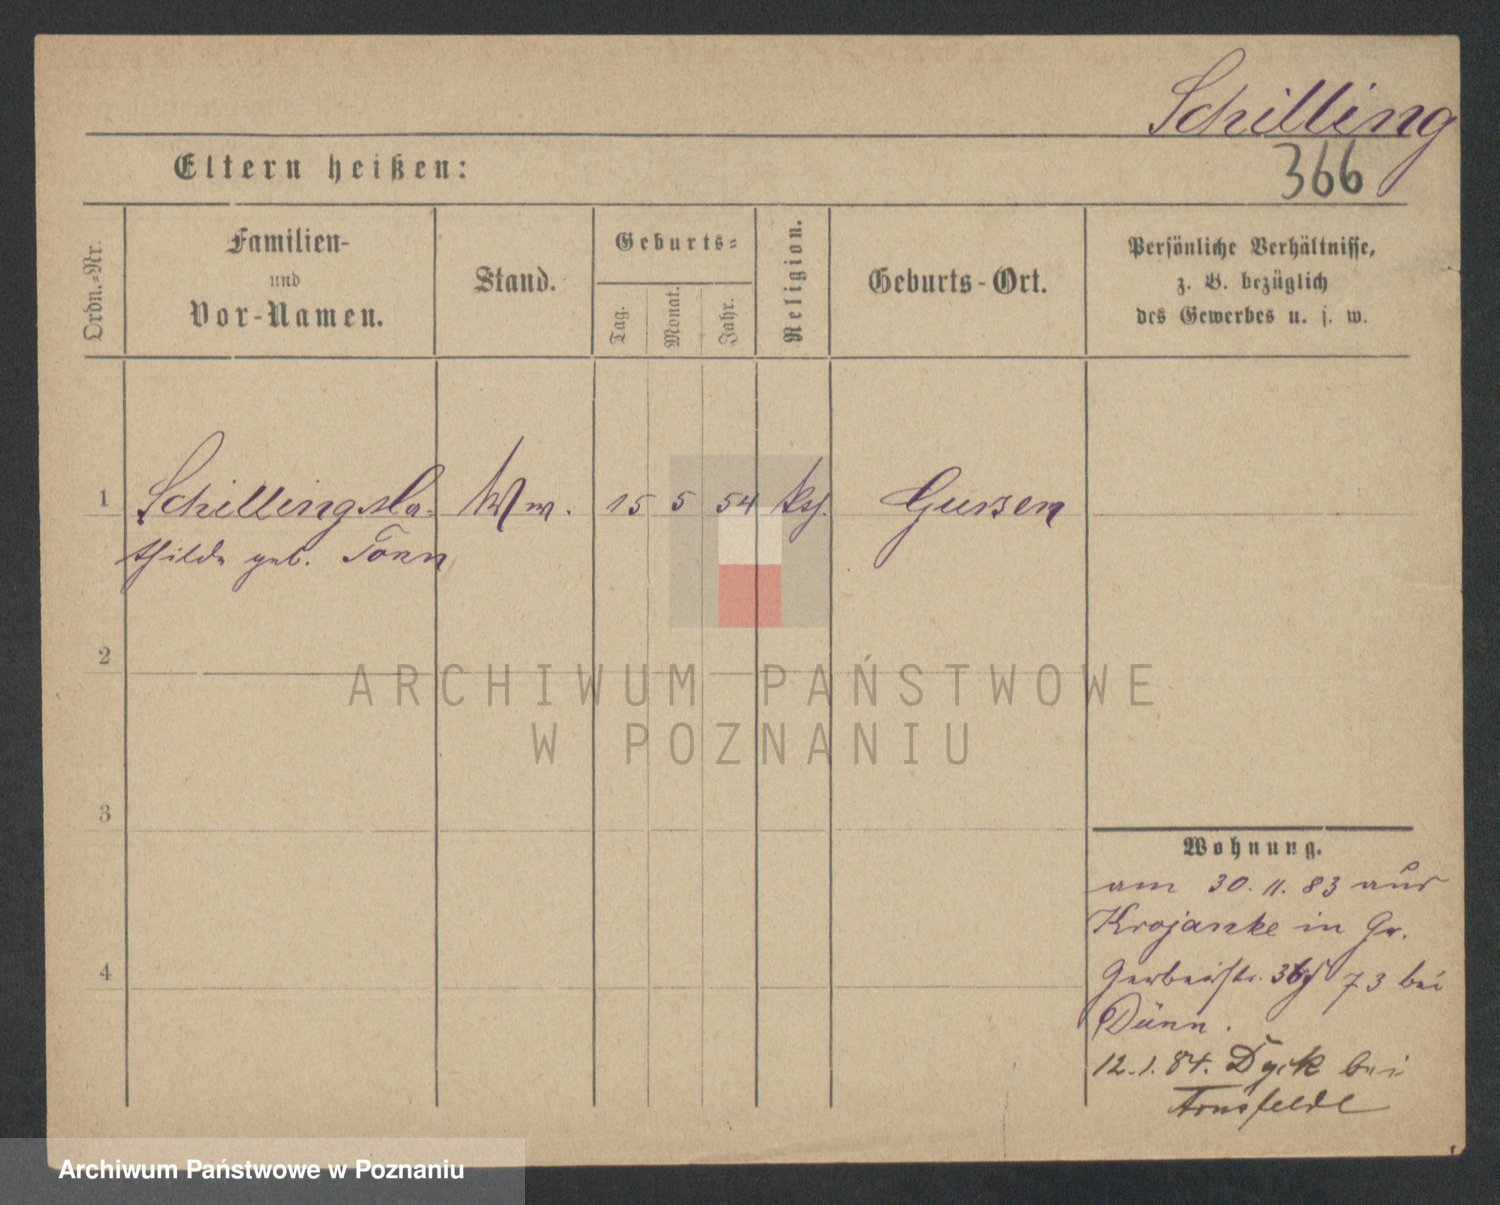 Schilling
Eltern heißen:
366
Ordn.-Nr.
Familien-
und
Vor-Namen.
Stand.
Geburts-
Tag.
Monat.
Jahr.
Religion.
Geburts-Ort.
Persönliche Verhältnisse,
z. B. bezüglich
des Gewerbes u. s. w.
1
Schilling
Ww.
15
5
54
thilde geb. Tonn
2
3
4
Wohnung.
am 30.11.83 aus
Krojanke in Gr.
Gerberstr. 73 bei
Dünn.
12.1.84. Dyck bei
Arnsfelde
ARCHIWUM PAŃSTWOWE
W POZNANIU
Archiwum Państwowe w Poznaniu